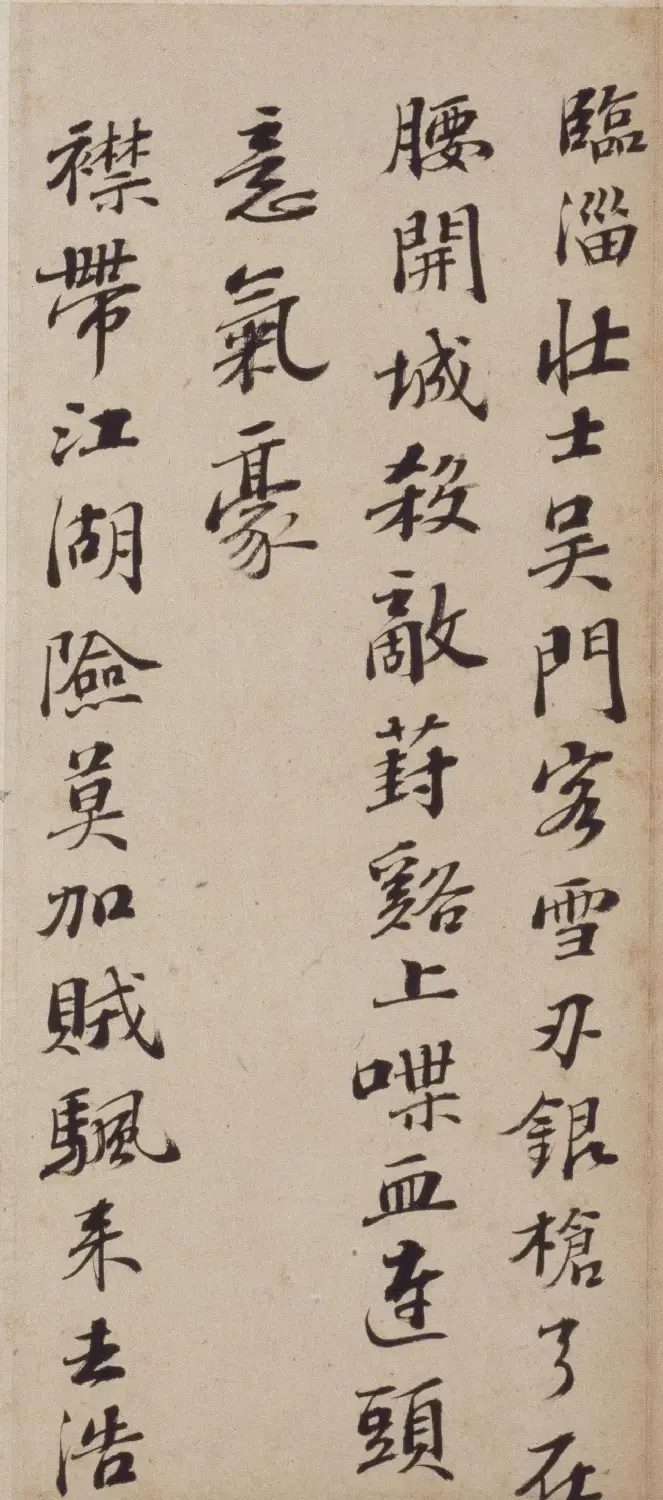 臨淄壯士吴門客雪刃銀槍弓在
腰開城殺敵葑谿上喋血連頭
意氣豪
襟帶江湖險莫加賊颿来去浩